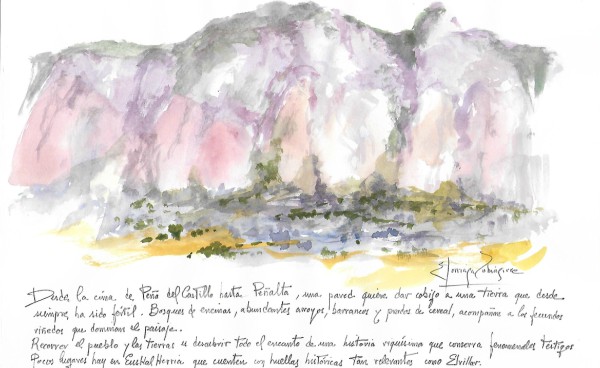 Desde la cima de Peña del Castillo hasta Peñalta, una pared quiere dar cobijo a una tierra que desde
siempre, ha sido fértil. Bosques de encinas, abundantes arroyos, barrancos y prados de cereal, acompañan a los fecundos
viñedos que dominan el paisaje.
Recorrer el pueblo y las tierras es descubrir todo el encanto de una historia riquísima que conserva fenomenales testigos
Pocos lugares hay en Euskal Herria que cuenten con huellas históricas tan relevantes como Elvillar.